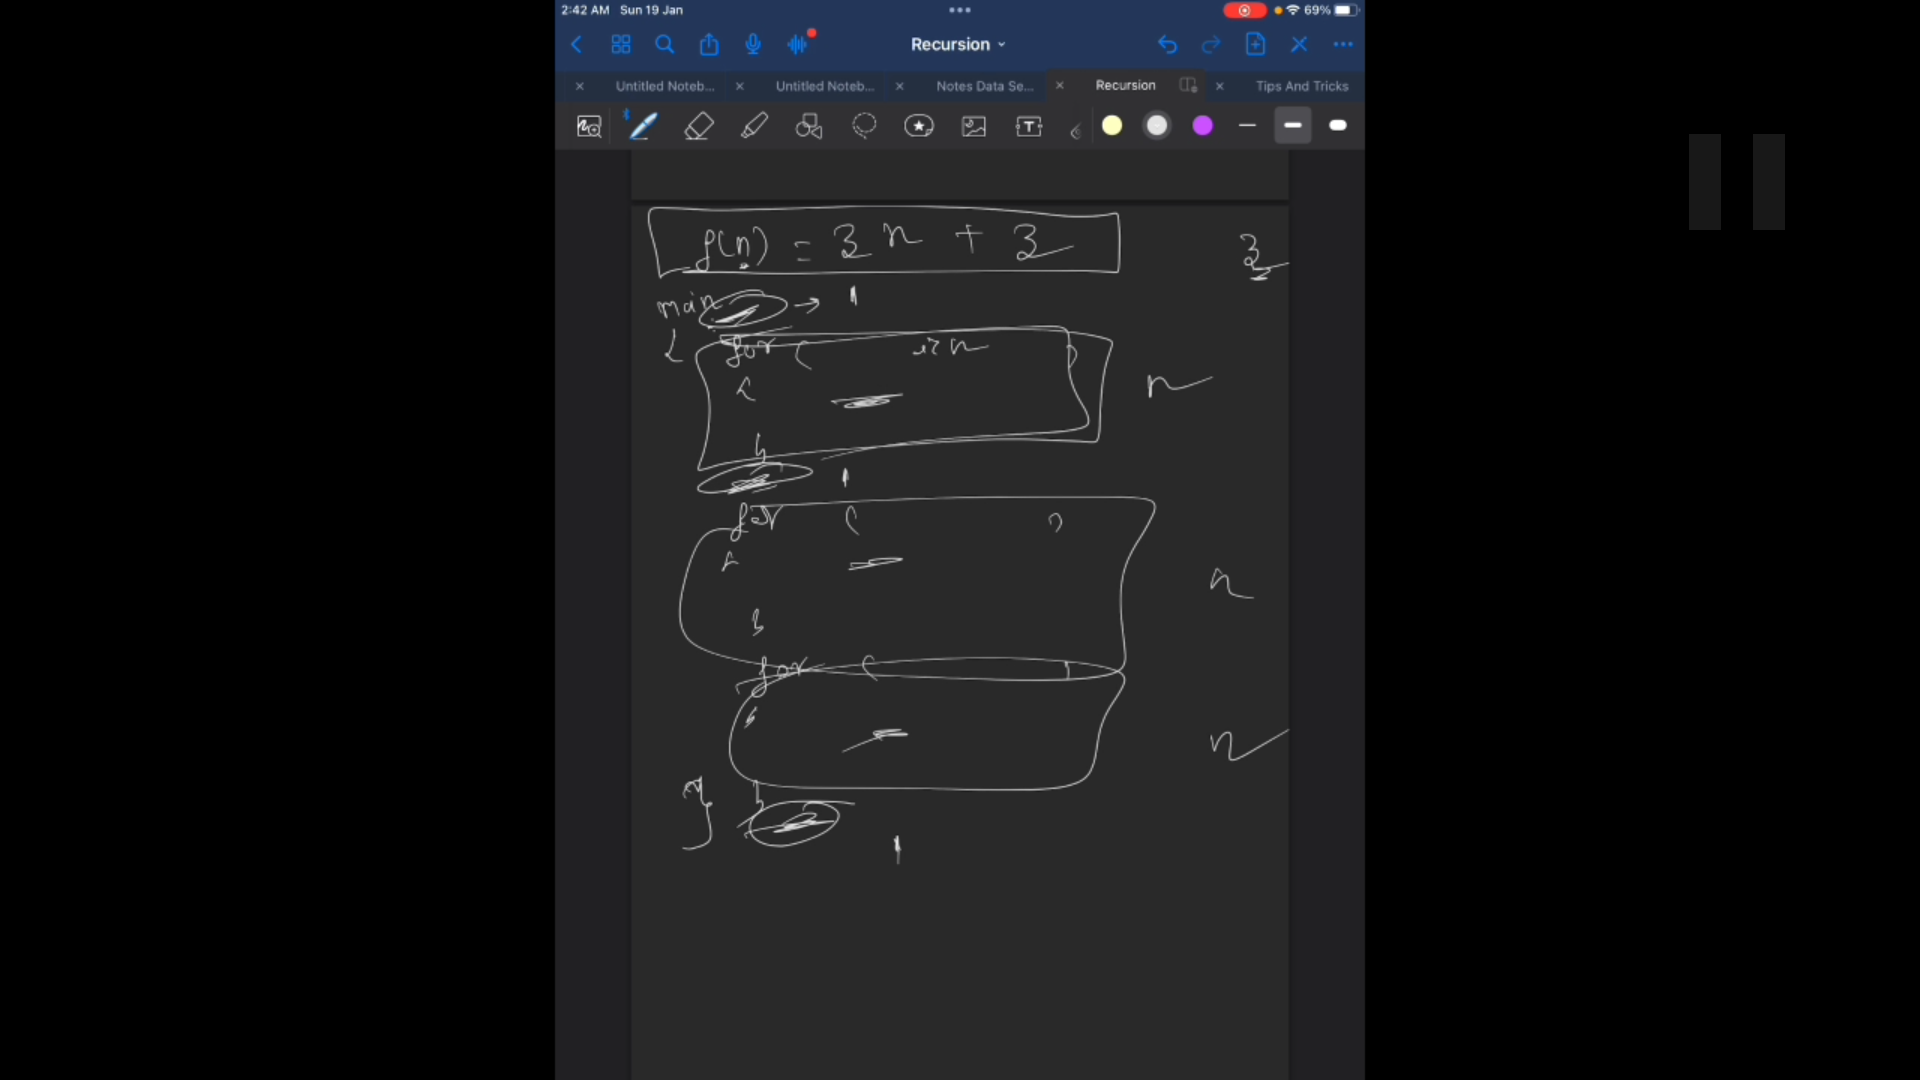 2:42 AM Sun 19 Jan
69%
Recursion
Untitled Noteb...
Untitled Noteb...
Notes Data Se...
Recursion
Tips And Tricks
T
f(n) = 3n + 3
3
main → 1
{ for ( i<n )
{
n
}
1
for ( )
{
n
}
for ( )
{
n
}
}
1